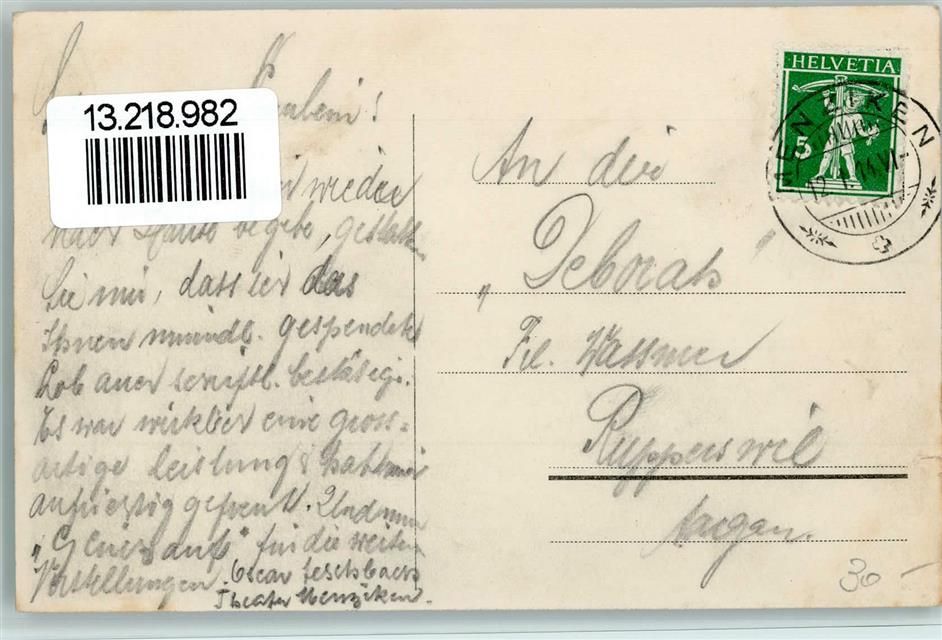 13.218.982
wieder
nach Hause begebe, gestatten
Sie mir, dass ich das
Ihnen mündl. gespendete
Lob auch schriftl. bestätige.
Es war wirklich eine gross-
artige Leistung & hat mich
aufrichtig gefreut. Und nun
"Glück auf" für die weitern
Vorstellungen. Oscar Eschbach
Theater Menziken.
HELVETIA
5
MENZIKEN
An die
"Deborah"
Frl. Wassmer
Rupperswil
Aargau.
30 -